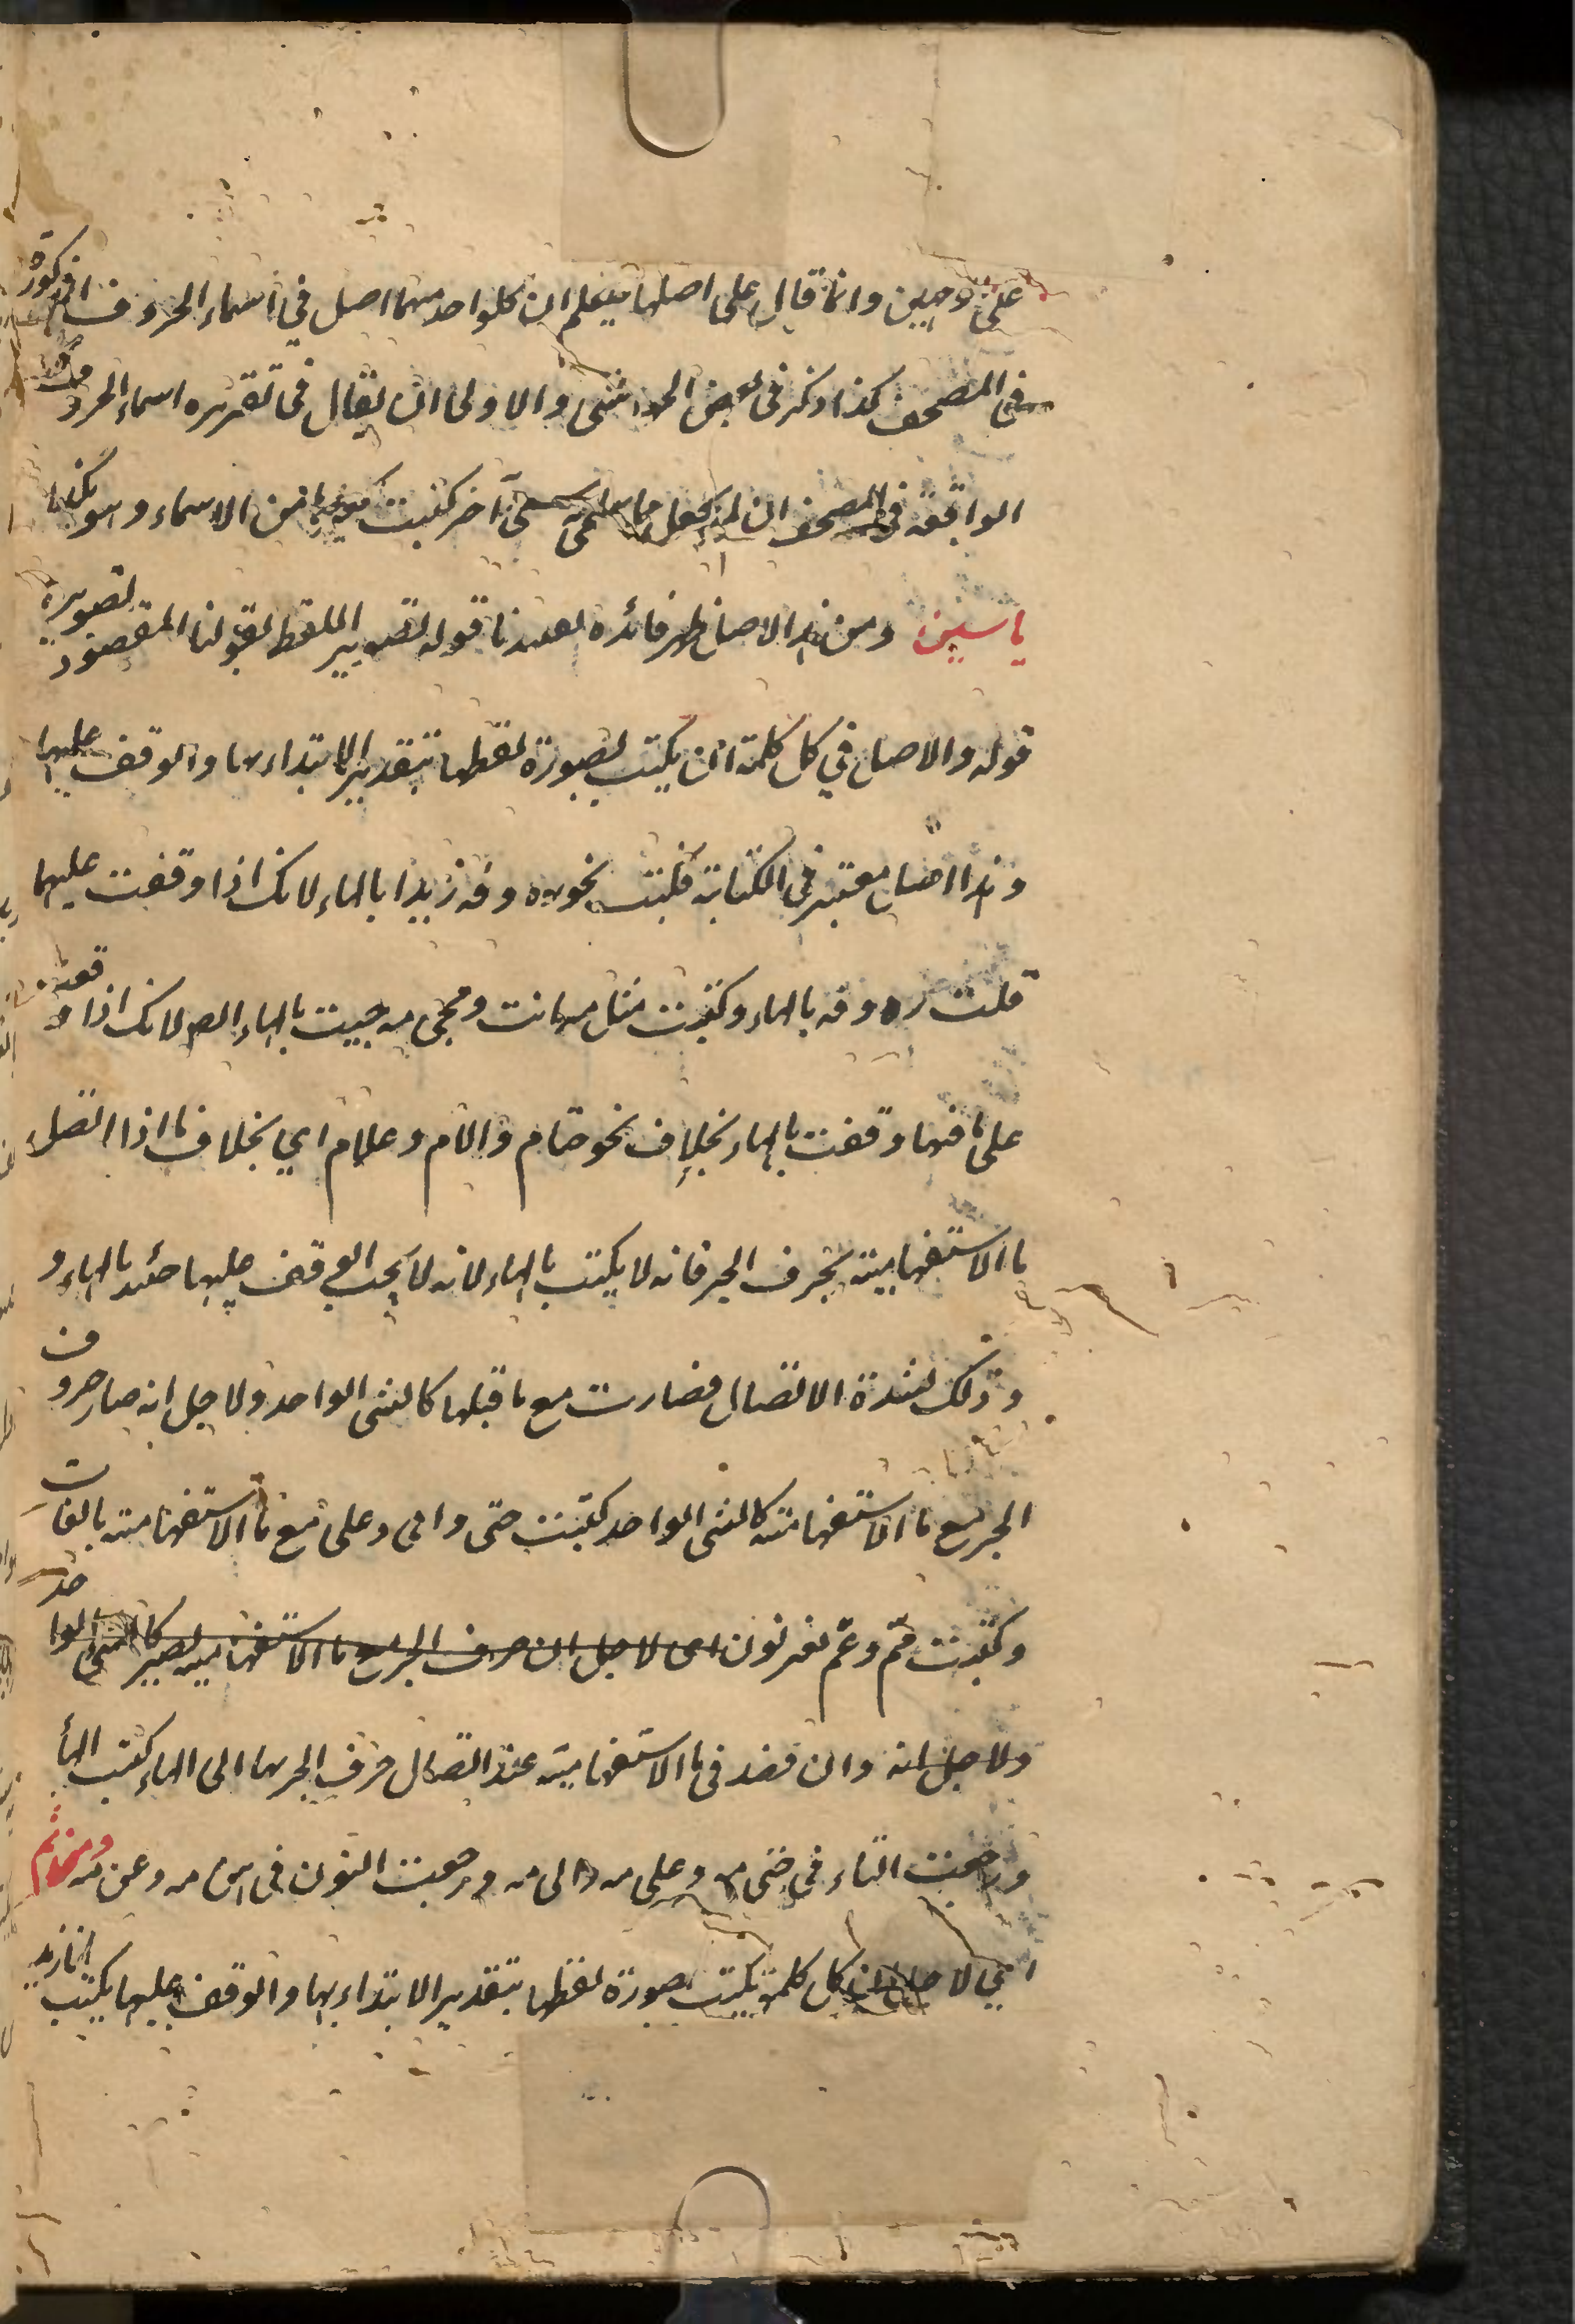 على وجهين وانما قال على اصلها ليعلم ان كلواحد منهما اصل في اسماء الحروف المذكورة
في المصحف كذا ذكر في بعض الحواشى والاولى ان يقال في تقريره اسماء الحروف
الواقعة في المصحف ان لم يجعل مسمى آخر كتبت كغيرها من الاسماء وهو يكتب
ياسين ومن هذا الاصل ظهر فائدة تقييدنا قوله تصوير اللفظ بقولنا المقصود تصويره
قوله والاصل في كل كلمة ان يكتب بصورة لفظها بتقدير الابتداء بها والوقف عليها
وهذا اصل معتبر في الكتابة فكتبت نحو ره وقه زيدا بالهاء لانك اذا وقفت عليهما
قلت ره وقه بالهاء وكتبت مثل مه انت ومجى مه جيت بالهاء ايضا لانك اذا وقفت
على ما فيهما وقفت بالهاء بخلاف نحو حتام والام وعلام اي بخلاف ما اذا اتصل
ما الاستفهامية بحرف الجر فانه لا يكتب بالهاء لانه لا يجب الوقف عليها حينئذ بالهاء و
وذلك لشدة الاتصال فصارت مع ما قبلها كالشى الواحد ولاجل انه صار حروف
الجر مع ما الاستفهامية كالشى الواحد كتبت حتى والى وعلى مع ما الاستفهامية بالفات
وكتبت مم وعم بغير نون اى لاجل ان حرف الجر مع ما الاستفهامية يصير كالشى الواحد
ولاجل انه وان قصد في ما الاستفهامية عند اتصال حرف الجر بها الى الهاء كتب الهاء
ورجعت الياء في حتى مه وعلى مه والى مه ورجعت النون في من مه وعن مه ومن ثم
اى لاجل ان كل كلمة يكتب بصورة لفظها بتقدير الابتداء بها والوقف عليها يكتب انا زيد